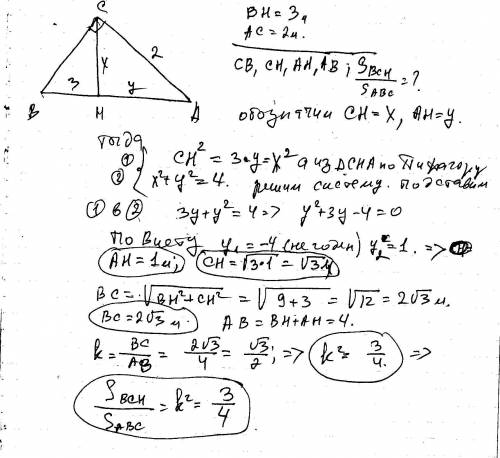 C
BH = 3м
AC = 2м.
X 2
3 y
B H A
CB, CH, AH, AB; S_BCH / S_ABC = ?
обозначим CH = X, AH = y.
Тогда
① CH² = 3·y = X² а из ΔCHA по Пифагору
② x² + y² = 4. решим систему. подставим
① в ② 3y + y² = 4 => y² + 3y - 4 = 0
По Виету y₁ = -4 (не годен) y₂ = 1. =>
AH = 1м; CH = √3·1 = √3м
BC = √BH² + CH² = √9 + 3 = √12 = 2√3 м.
BC = 2√3 м. AB = BH + AH = 4.
k = BC/AB = 2√3/4 = √3/2; => k² = 3/4. =>
S_BCH / S_ABC = k² = 3/4